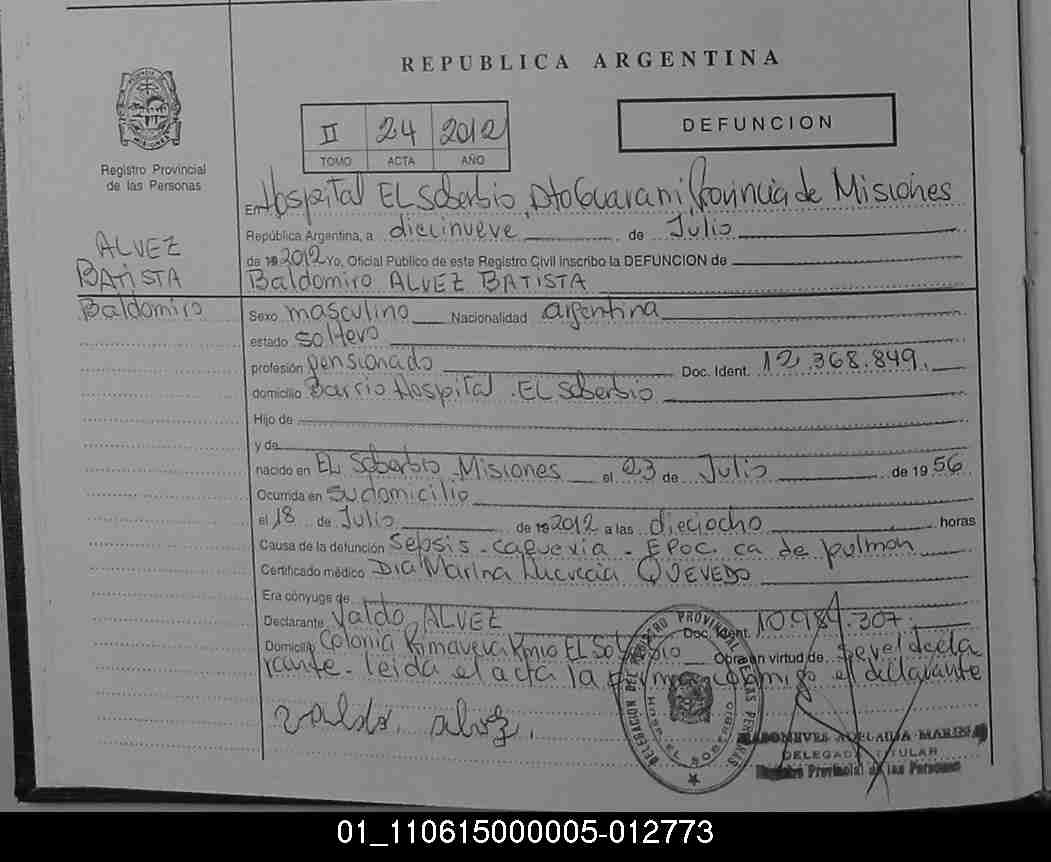 REPUBLICA ARGENTINA
II 24 2012
TOMO ACTA AÑO
DEFUNCION
Registro Provincial
de las Personas
ALVEZ
BATISTA
Baldomiro
En Hospital EL Soberbio, Dto Guarani Provincia de Misiones
República Argentina, a diecinueve de Julio
de 19 2012 Yo, Oficial Público de este Registro Civil inscribo la DEFUNCION de
Baldomiro ALVEZ BATISTA
Sexo masculino Nacionalidad argentina
estado soltero
profesión pensionado Doc. Ident. 12.368.849.
domicilio Barrio Hospital. EL Soberbio
Hijo de
y de
nacido en EL Soberbio Misiones el 23 de Julio de 1956
Ocurrida en Su domicilio
el 18 de Julio de 19 2012 a las dieciocho horas
Causa de la defunción Sepsis - caquexia - EPOC. ca de pulmon
Certificado médico Dra Marina Lucrecia QUEVEDO
Era cónyuge de
Declarante Valdo ALVEZ Doc. Ident. 10.984.307.
Domicilio Colonia Primavera EL Soberbio Obra en virtud de decla
rante - leida el acta la firma conmigo el declarante
valdo. alvez.
DELEGACION DEL REGISTRO PROVINCIAL DE LAS PERSONAS
HOSP. EL SOBERBIO
DELEGADA TITULAR
Registro Provincial de las Personas
01_110615000005-012773